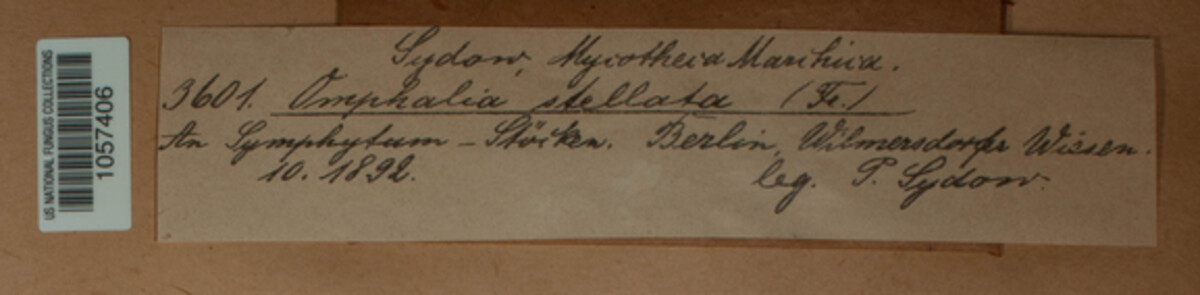 US NATIONAL FUNGUS COLLECTIONS
1057406
Sydow, Mycotheca Marchica.
3601. Omphalia stellata (Fr.)
An Symphytum - Stöcken. Berlin, Wilmersdorfer Wiesen.
10. 1892. leg. P. Sydow.